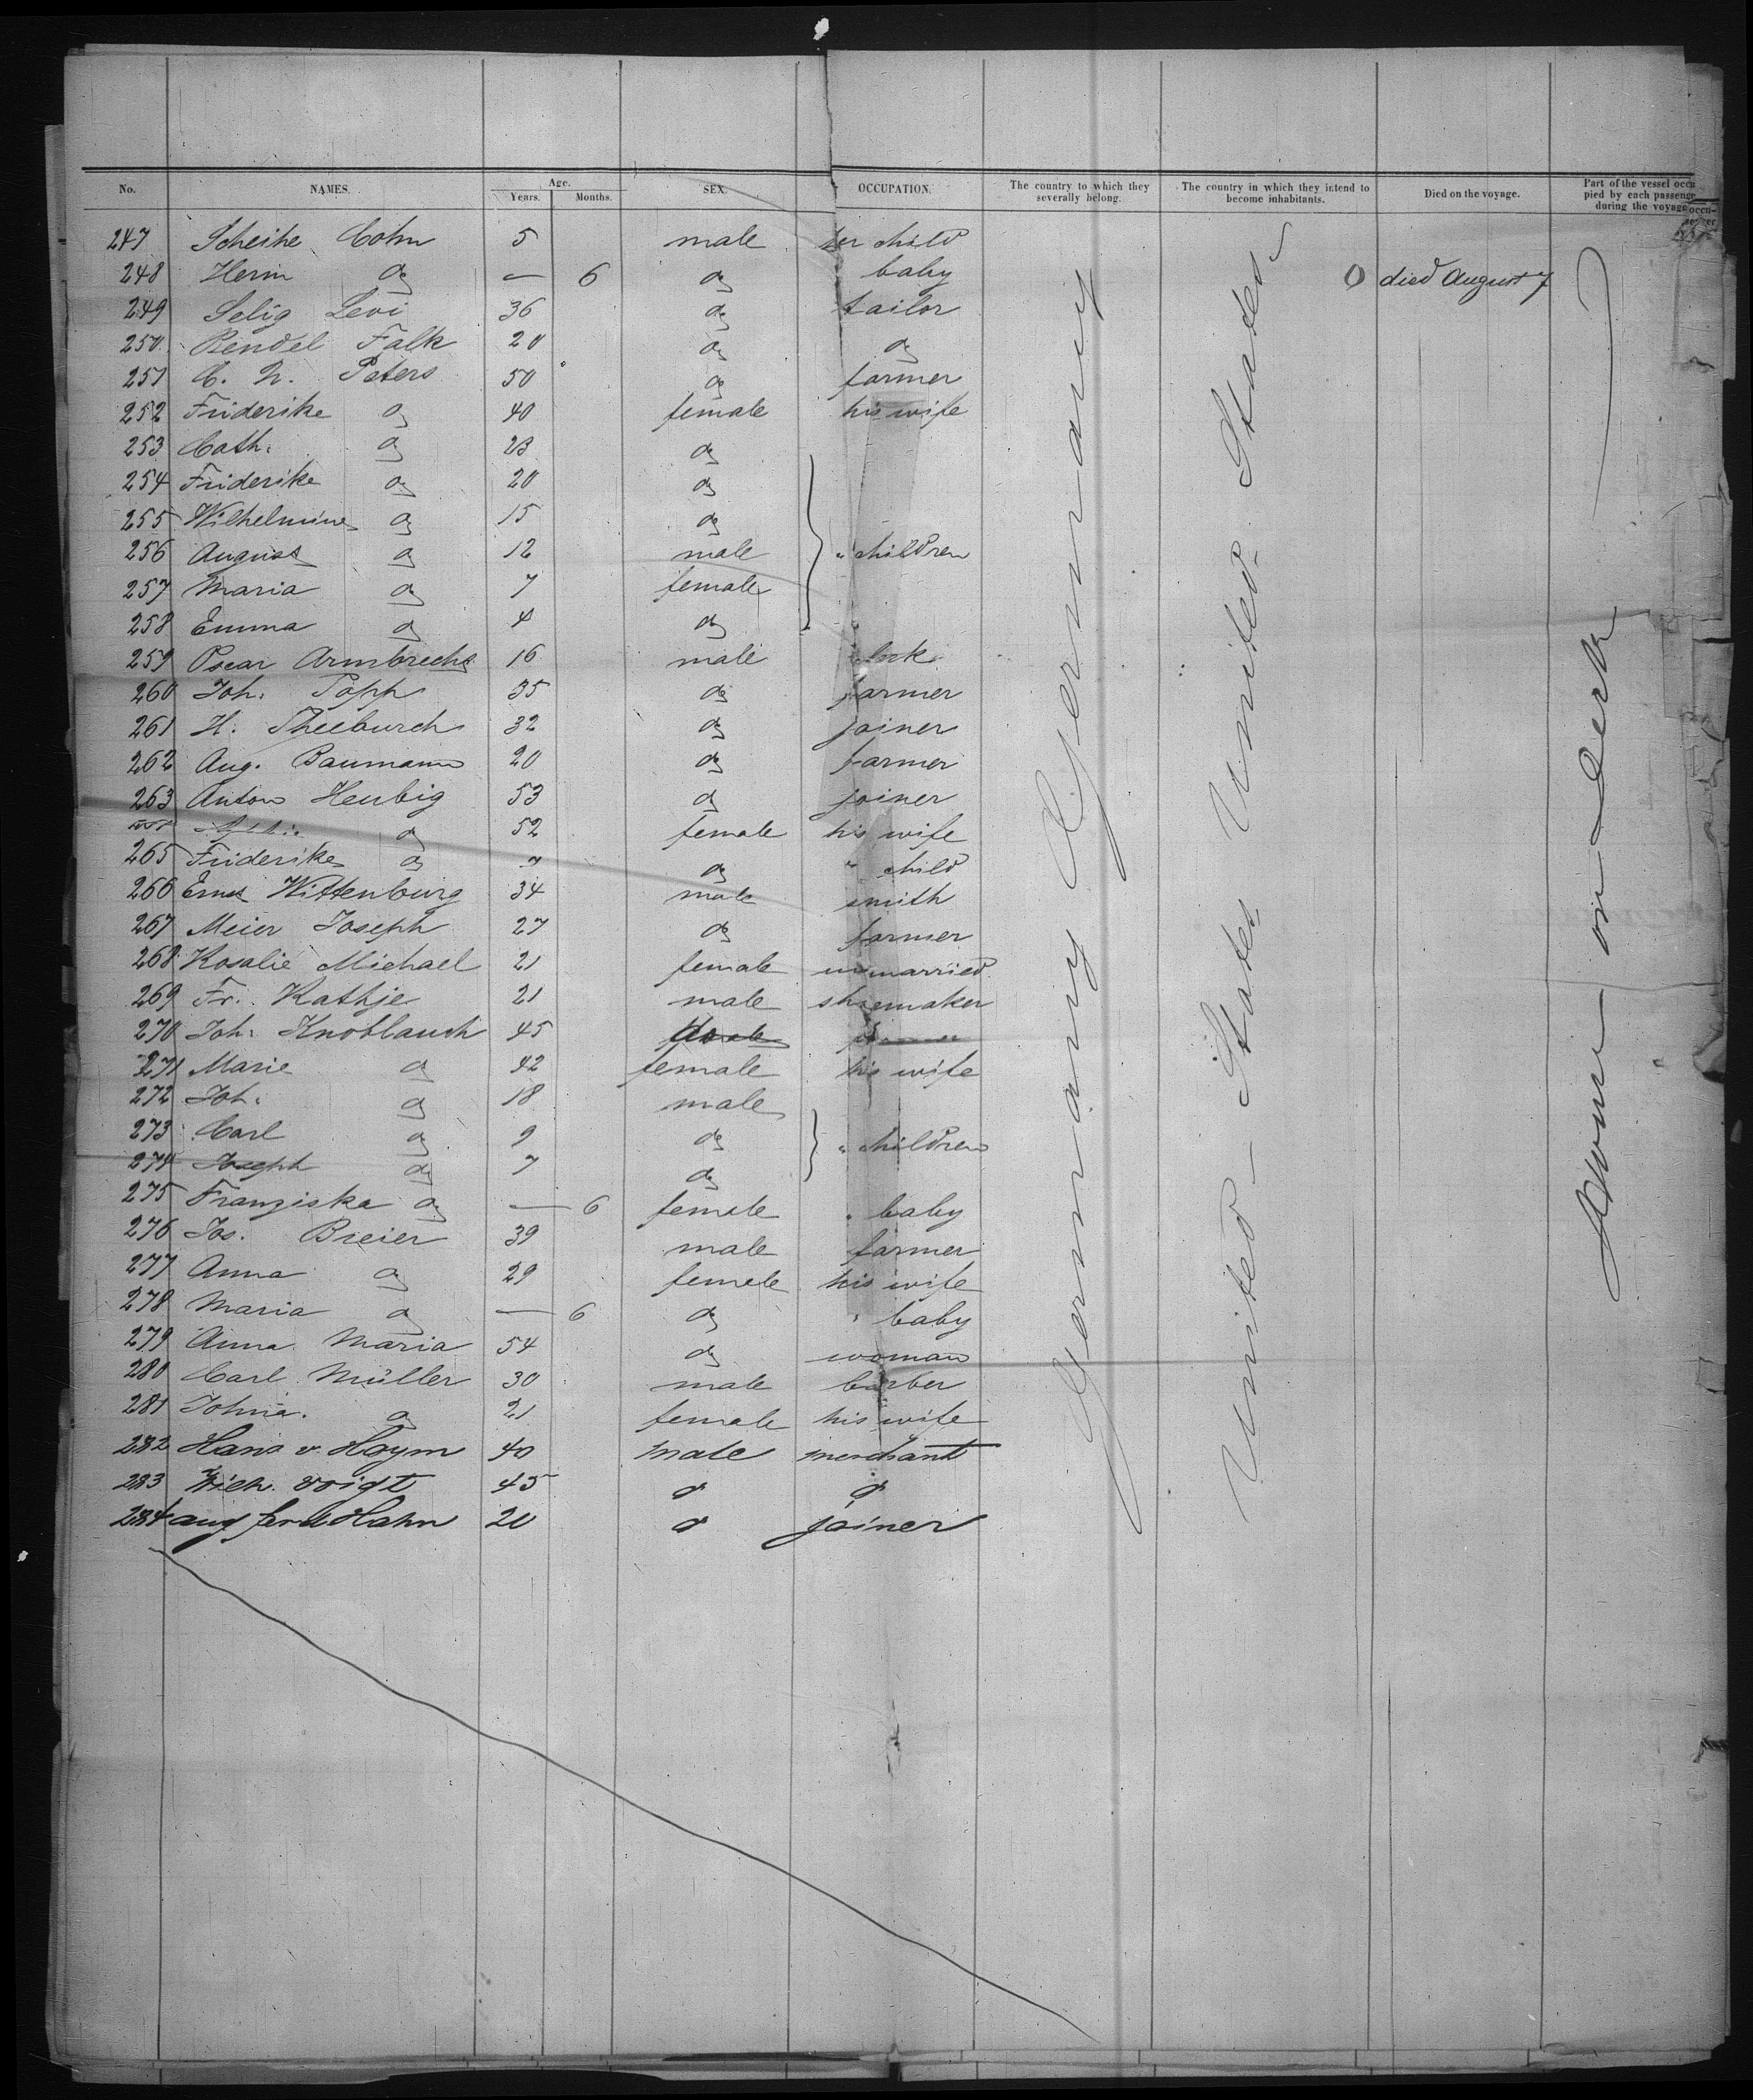 No. NAMES. Age. Years. Months. SEX. OCCUPATION. The country to which they severally belong. The country in which they intend to become inhabitants. Died on the voyage. Part of the vessel occupied by each passenger during the voyage
247 Scheine Cohn 5 male her child
248 Herm do — 6 do baby 0 died August 7
249 Selig Levi 36 do tailor
250 Bendel Falk 20 do do
251 C. N. Peters 50 do farmer
252 Friderike do 40 female his wife
253 Cath. do 23 do
254 Friderike do 20 do
255 Wilhelmine do 15 do
256 August do 12 male " children
257 Maria do 7 female
258 Emma do 4 do
259 Oscar Armbrecht 16 male
260 Joh. Pöph 35 do farmer
261 H. Theeburch 32 do joiner
262 Aug. Baumann 20 do farmer
263 Anton Heubig 53 do joiner
do 52 female his wife
265 Friderike do 7 do " child
266 Ernst Wittenburg 34 male smith
267 Meier Joseph 27 do farmer
268 Rosalie Michael 21 female unmarried
269 Fr. Kathje 21 male shoemaker
270 Joh. Knoblauch 45 farmer
271 Marie do 42 female his wife
272 Joh. do 18 male
273 Carl do 9 do " children
274 Joseph do 7 do
275 Franziska do — 6 female " baby
276 Jos. Breier 39 male farmer
277 Anna do 29 female his wife
278 Maria do — 6 do " baby
279 Anna Maria 54 do woman
280 Carl Müller 30 male barber
281 Johna. do 21 female his wife
282 Hans v. Hoym 40 male merchant
283 Wilh. Voigt 45 d d
284 aug ferd Hahn 20 d joiner
Germany Germany
United-States United-States
on deck